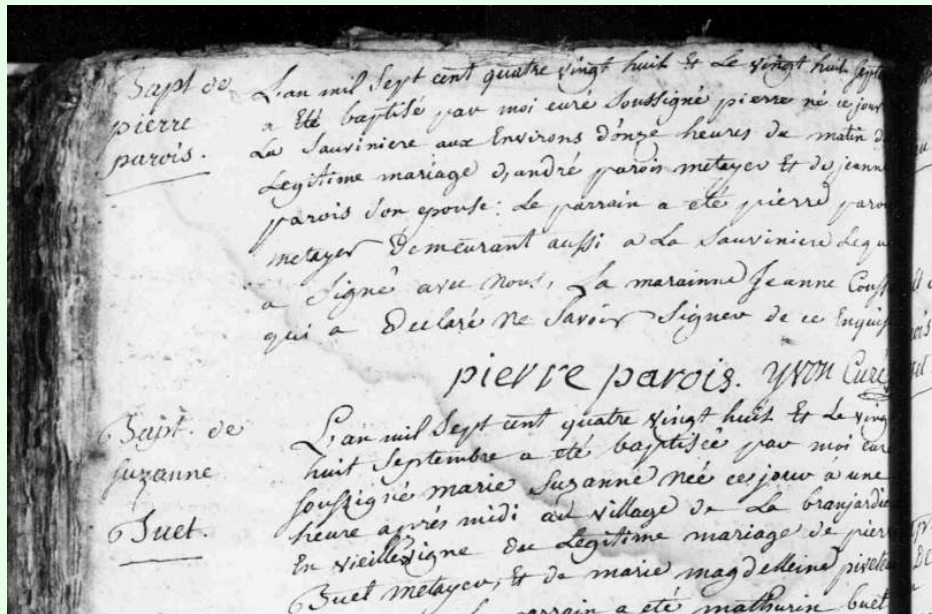 Bapt de
pierre
parois.
L'an mil Sept cent quatre vingt huit Et Le vingt huit Septe
a Eté baptisé par moi curé Soussigné pierre né ce jour
La Sauviniere aux Environs d'onze heures du matin du
Legitime mariage d'andré parois metayer Et de jeanne
parois Son epouse: Le parrain a eté pierre paroi
metayer Demeurant aussi a La Sauviniere Lequ
a Signé avec nous, La marainne Jeanne Couss
qui a Declaré ne Savoir Signer de ce Enquis
pierre parois. yvon Curé
Bapt. de
suzanne
Buet.
L'an mil Sept cent quatre vingt huit Et Le ving
huit Septembre a eté baptisée par moi curé
soussigné marie Suzanne née ce jour a une
heure aprés midi au village de La branjardie
En vieillevigne du Legitime mariage de pierr
Buet metayer, Et de marie magdelleine pivete
parrain a eté mathurin buet